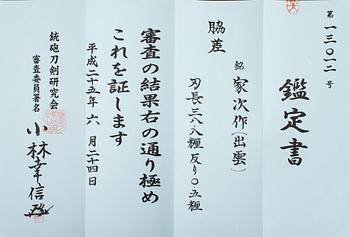 第一三〇一二号
鑑定書
脇差
銘 家次作(出雲)
刃長三六八糎 反り〇五糎
審査の結果右の通り極め
これを証します
平成二十五年 六月二十四日
銃砲刀剣研究会
審査委員署名
小林幸信